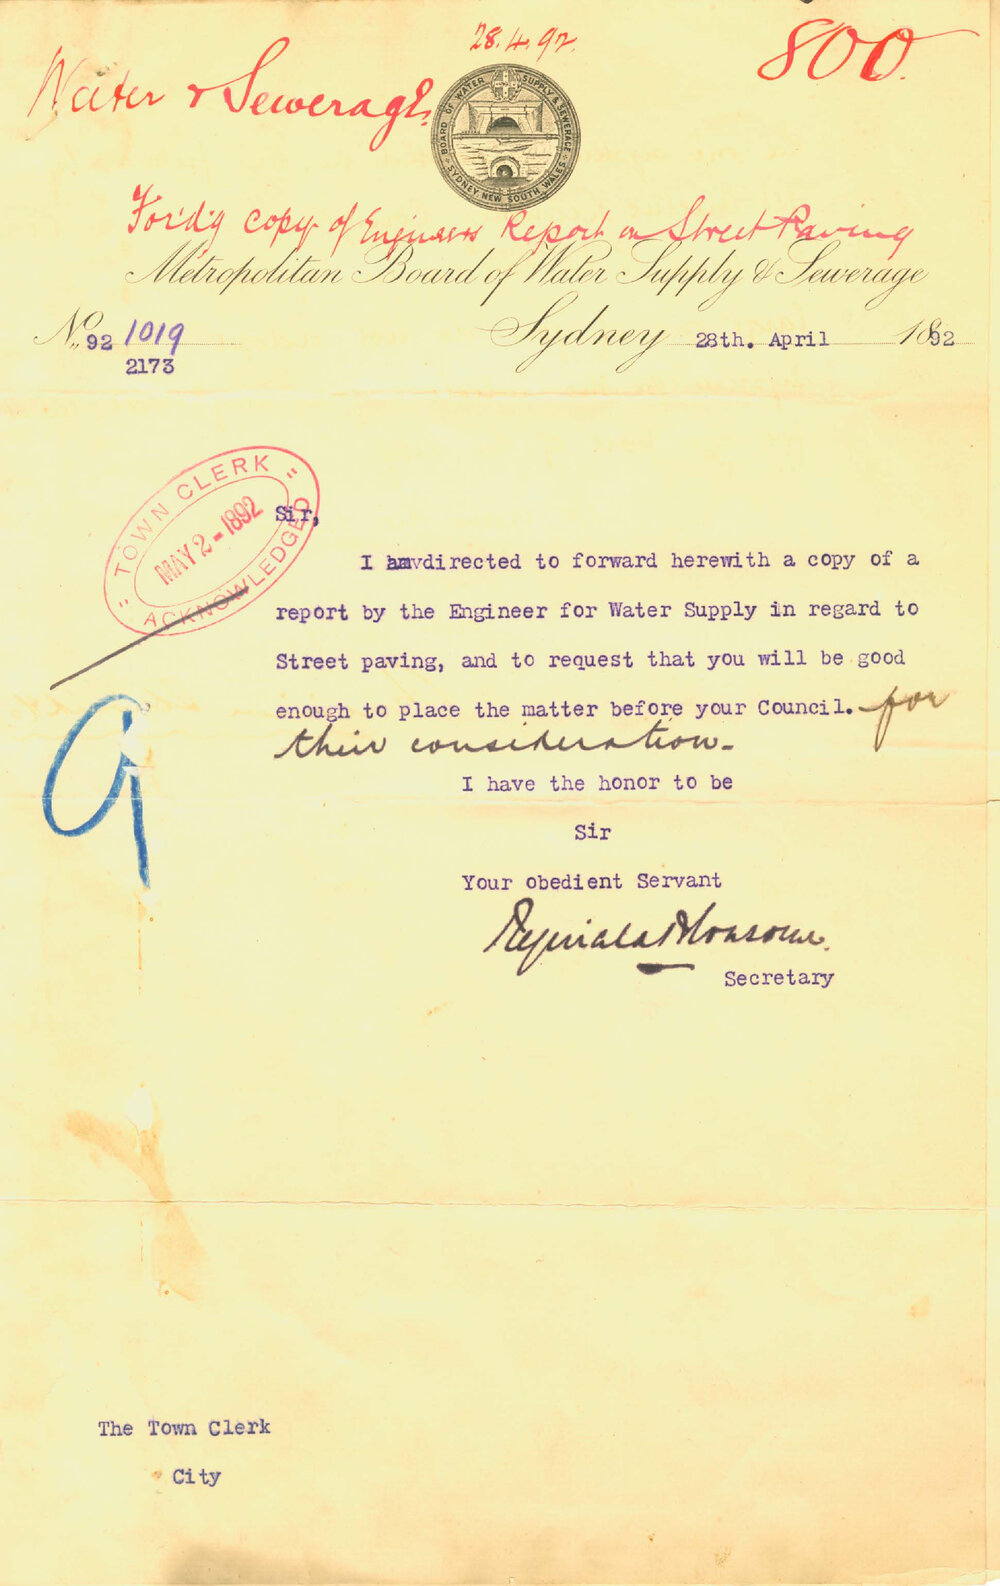 28.4.92.
800.
Water & Sewerage.
BOARD OF WATER SUPPLY & SEWERAGE
SYDNEY, NEW SOUTH WALES
For'd'g copy of Engineers Report on Street Paving
Metropolitan Board of Water Supply & Sewerage
No. 92 1019
2173
Sydney 28th. April 1892
"TOWN CLERK"
MAY 2-1892
ACKNOWLEDGED
Sir,
I am directed to forward herewith a copy of a
report by the Engineer for Water Supply in regard to
Street paving, and to request that you will be good
enough to place the matter before your Council. for
their consideration.
I have the honor to be
Sir
Your obedient Servant
Secretary
The Town Clerk
City